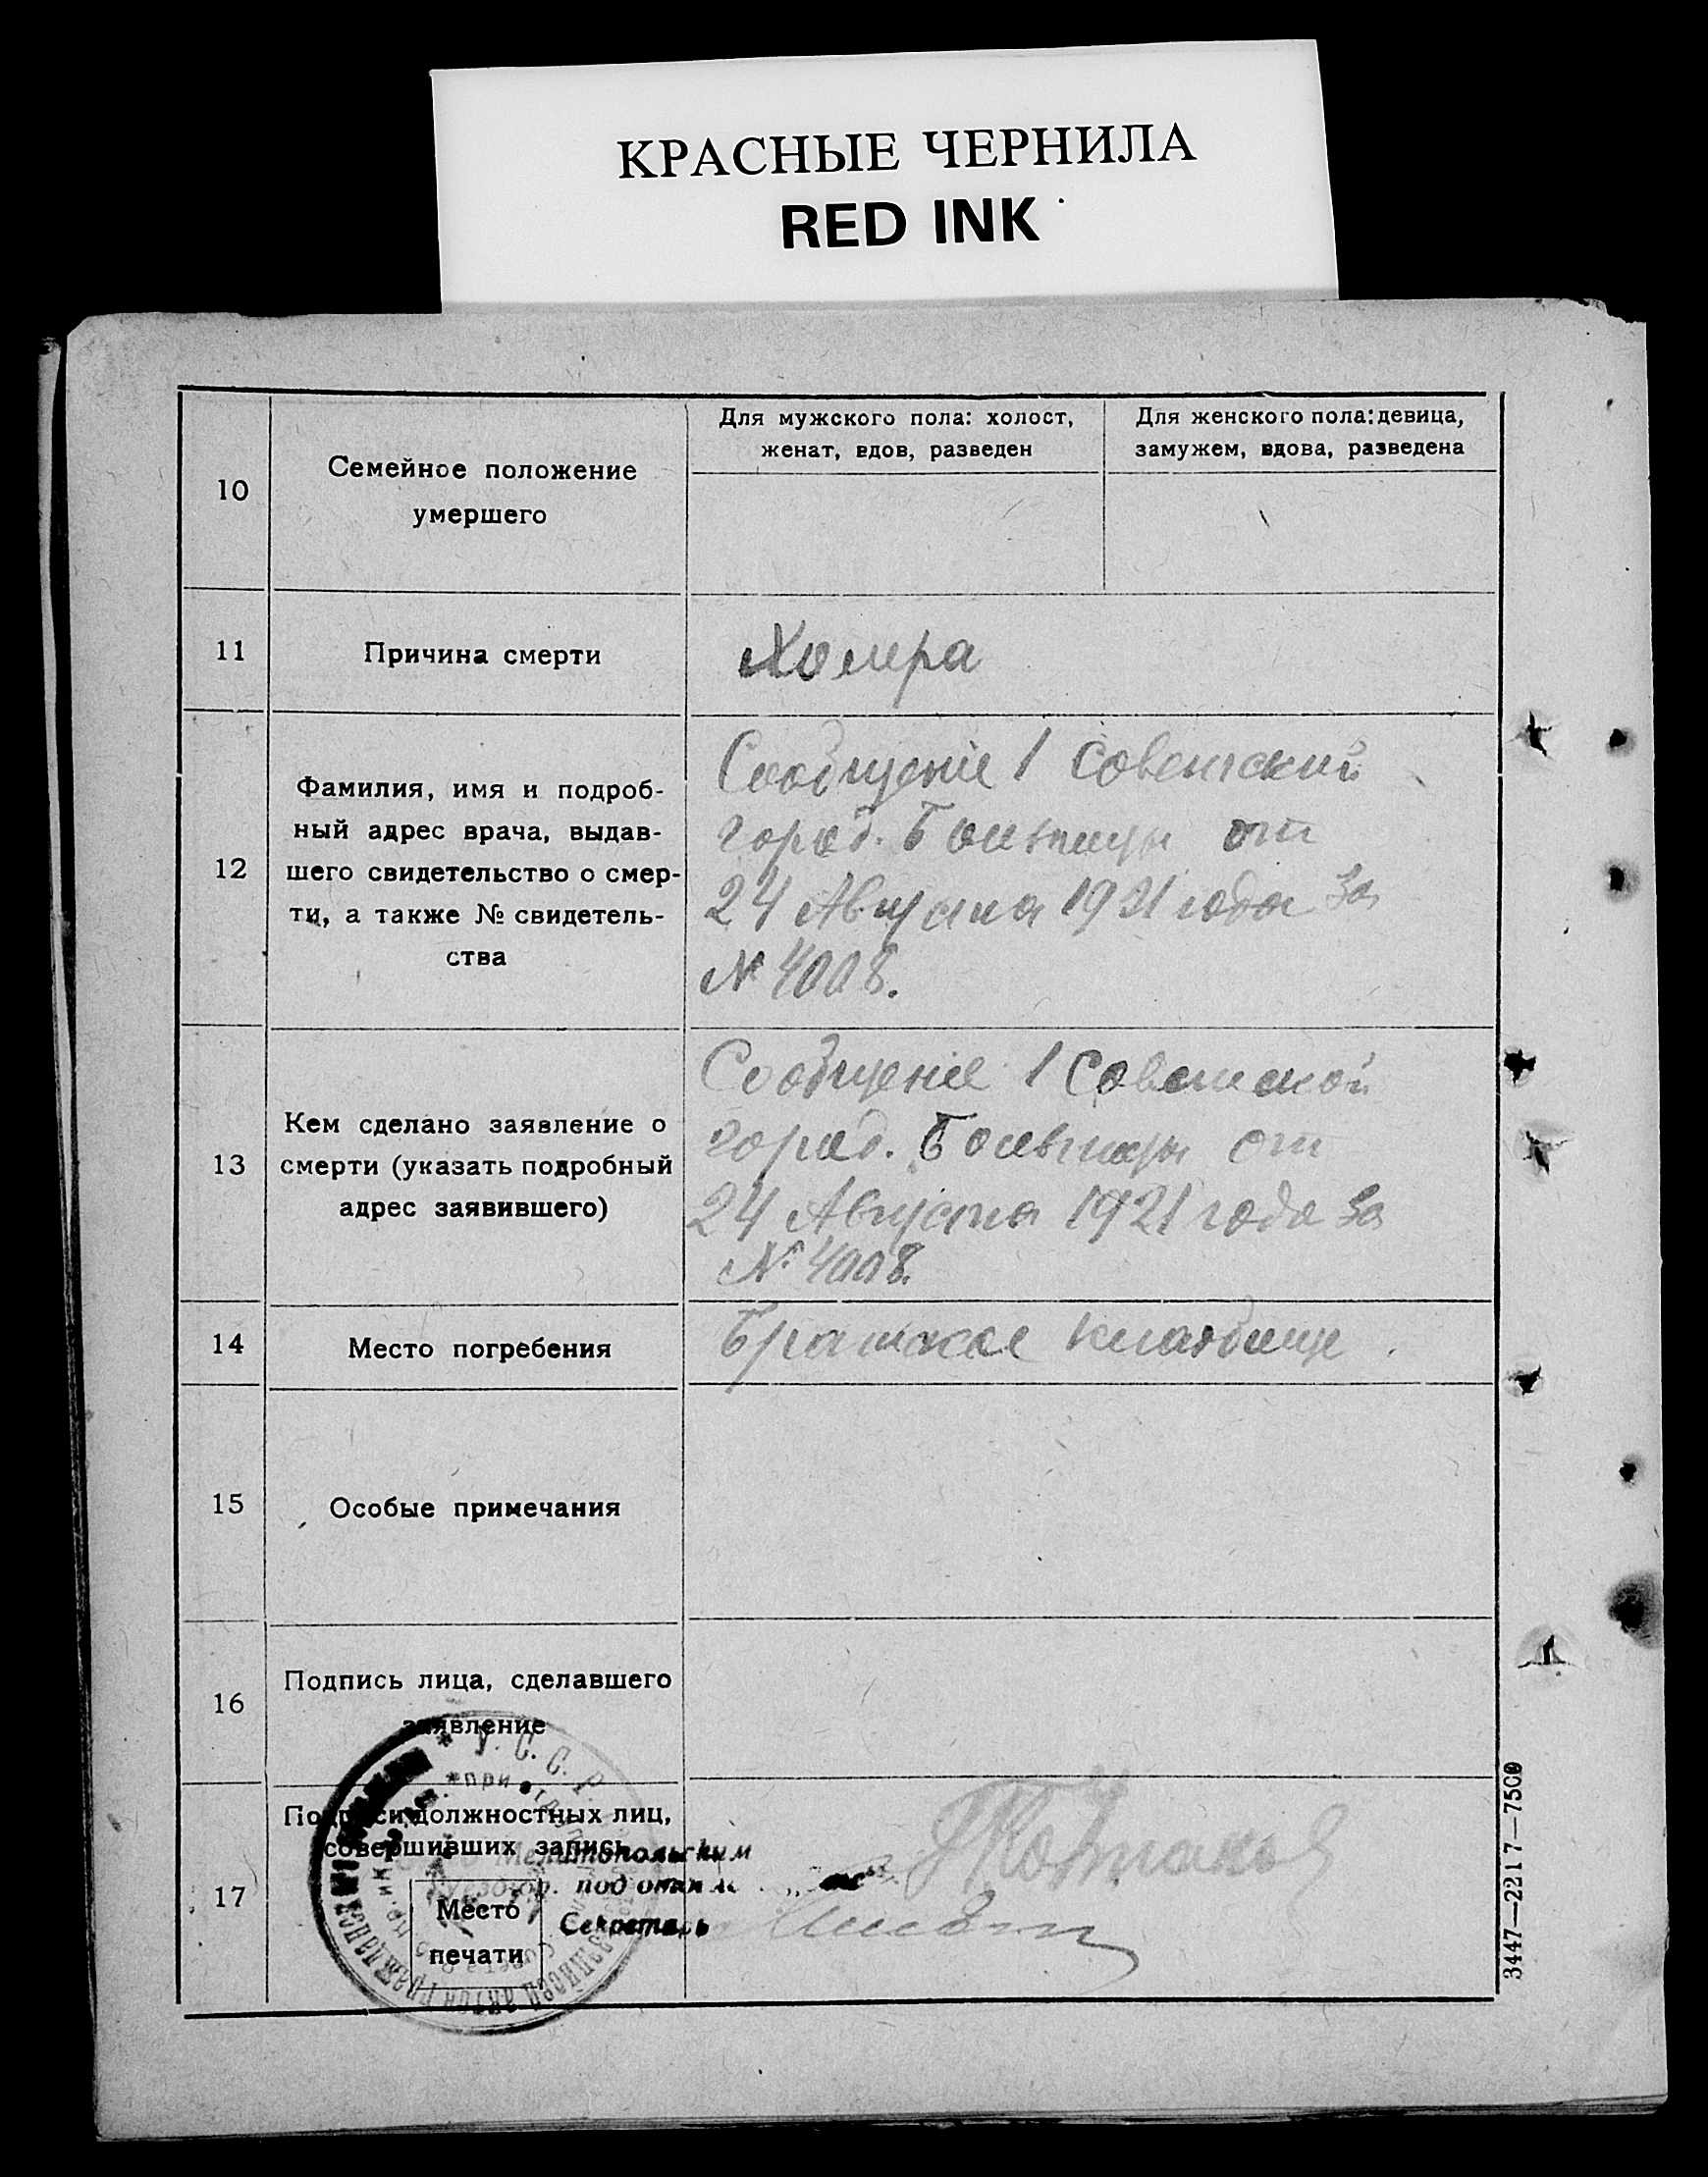 КРАСНЫЕ ЧЕРНИЛА
RED INK
10
Семейное положение
умершего
Для мужского пола: холост,
женат, вдов, разведен
Для женского пола: девица,
замужем, вдова, разведена
11
Причина смерти
Холера
12
Фамилия, имя и подроб-
ный адрес врача, выдав-
шего свидетельство о смер-
ти, а также № свидетель-
ства
Сообщение 1 Советский
город. Больницы от
24 Августа 1921 года за
№ 4008.
13
Кем сделано заявление о
смерти (указать подробный
адрес заявившего)
Сообщение 1 Советской
город. Больницы от
24 Августа 1921 года за
№ 4008.
14
Место погребения
Братское кладбище
15
Особые примечания
16
Подпись лица, сделавшего
заявление
17
Подписи должностных лиц,
совершивших запись
Место
печати
* У. С. С. Р.
*при
записей актов гражданск
Мелитопольским
под
Секретарь
3447—2217—7500